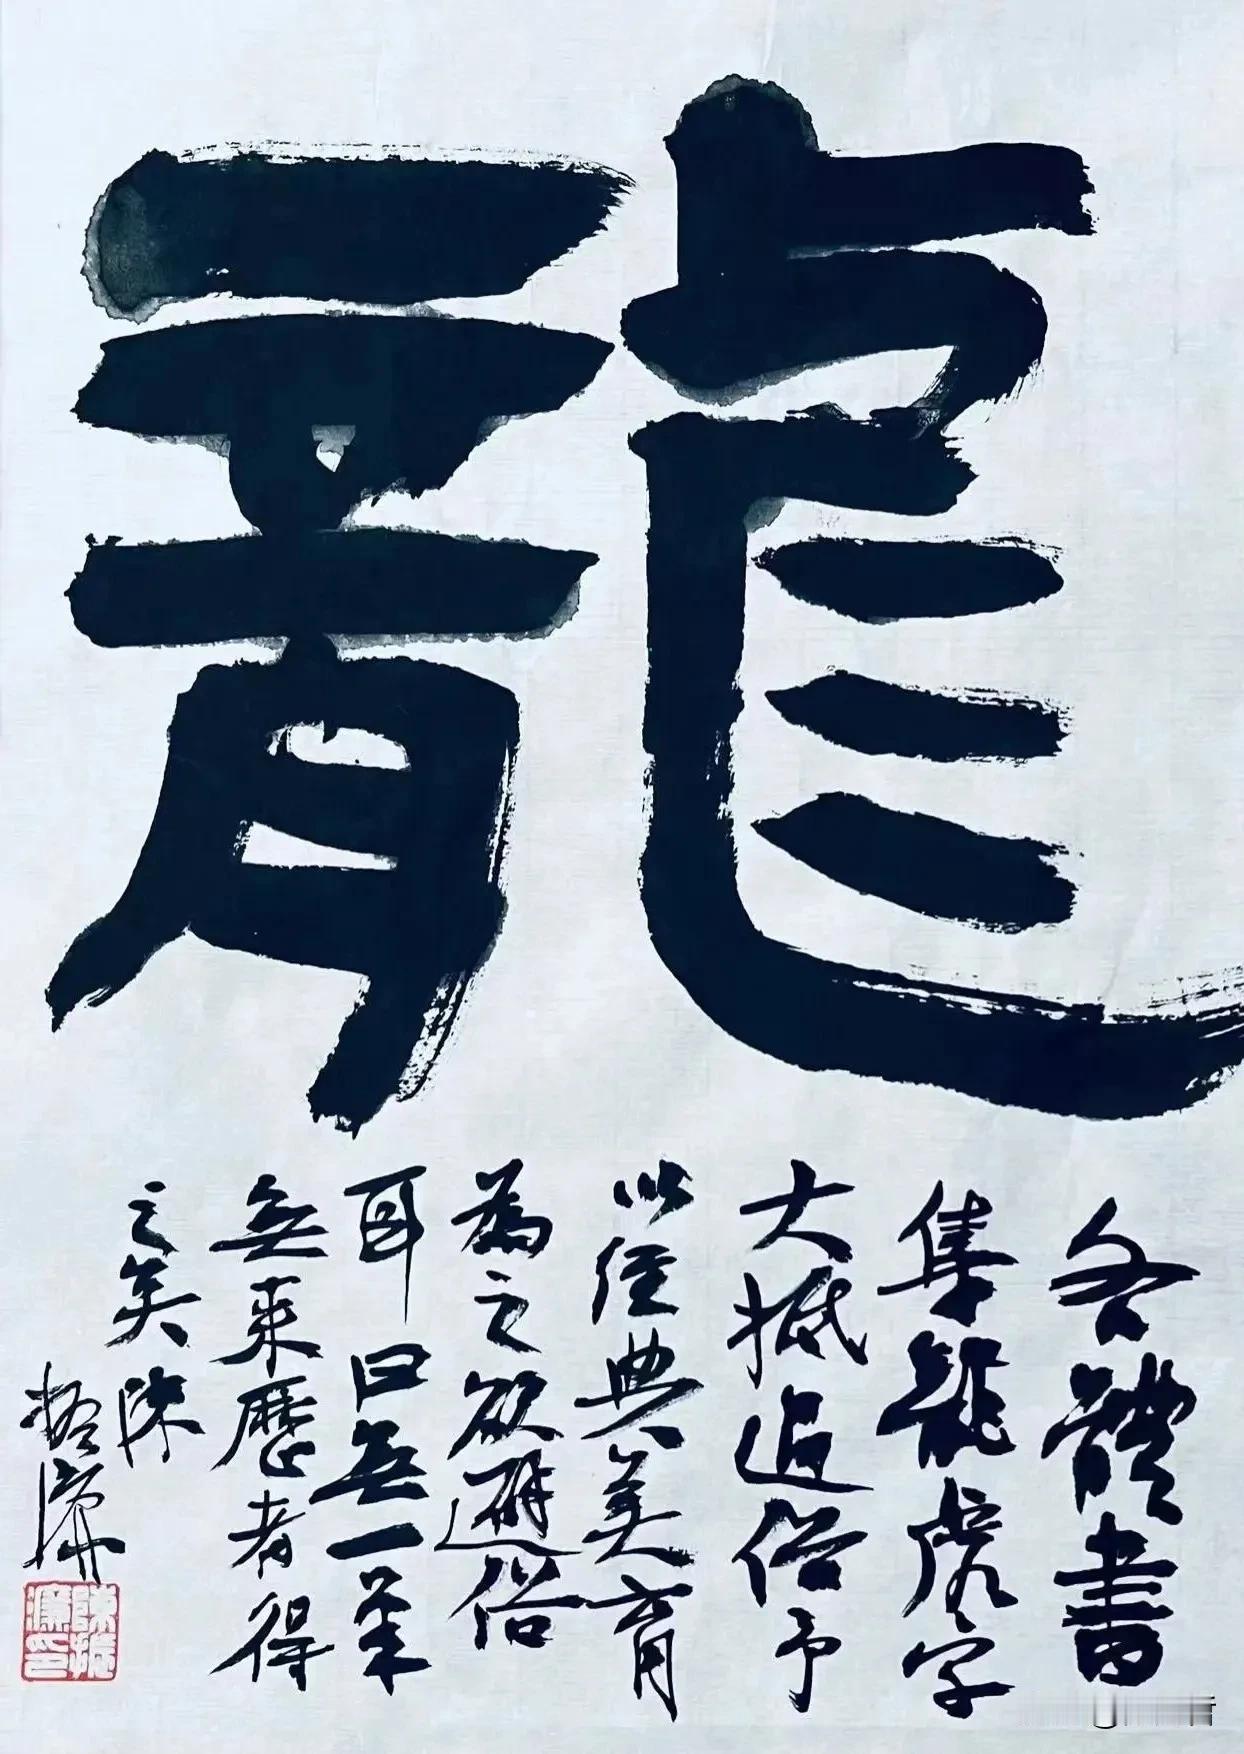 龍
各體書
集龍虎字
大抵近俗予
以經典美育
為之欲避俗
耳曰無一筆
無來歷者得
之矣陳
振濂
陳振濂印